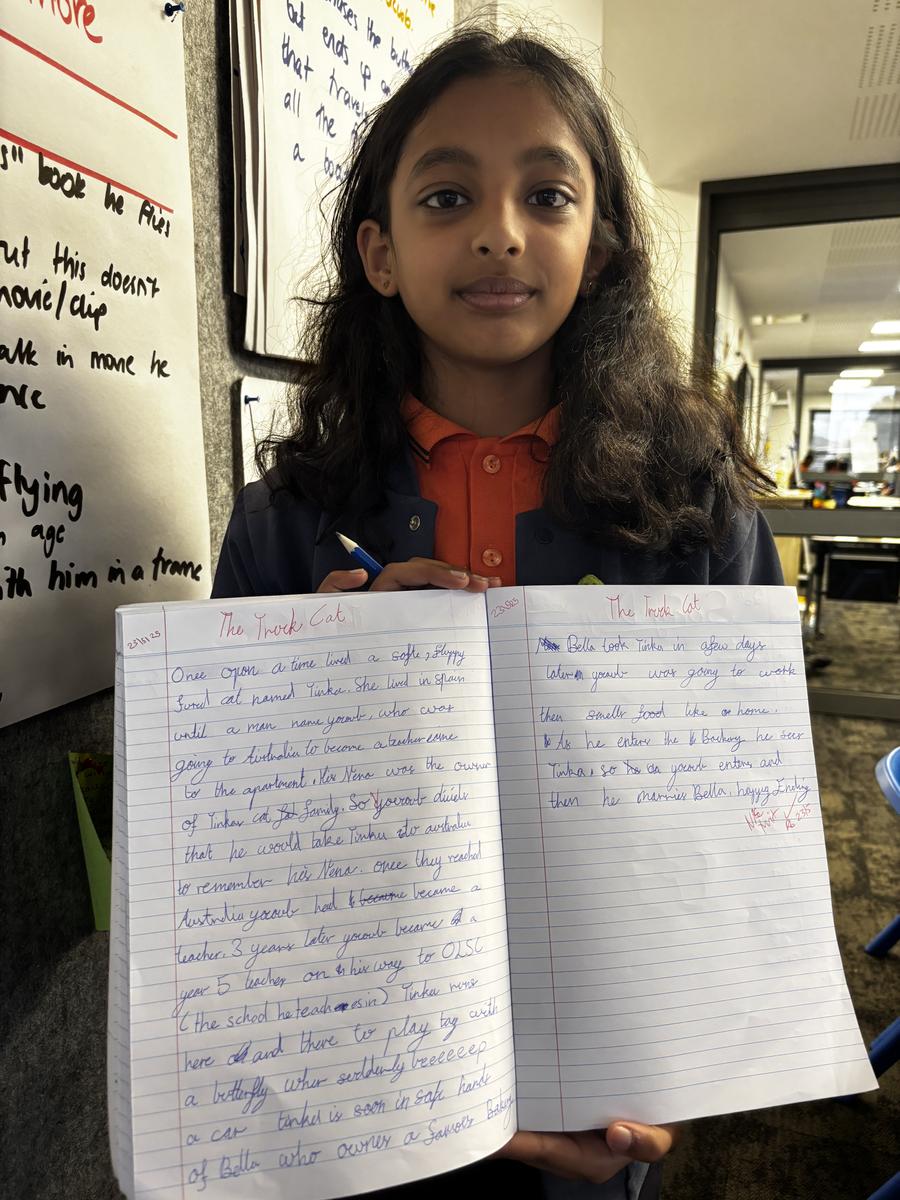 more
s" book he flies
ut this doesn't
movie/clip
alk in movie he
nce
flying
n age
ith him in a frame
uses the butt
but ends up
that trave
all the
a boat
23/5/25
The Truck Cat
Once opon a time lived a softe, fluppy
fured cat named Tinka. She lived in spain
until a man name yacoub, who was
going to Australia to become a teacher came
to the apartment. His Nena was the owner
of Tinkas cat family. So Yacoub dicids
that he would take Tinka to australia
to remember his Nena. once they reached
Australia yacoub had became became a
teacher. 3 years later yacoub became a
year 5 teacher on his way to OLSC
(the school he teach es in) Tinka runs
here and there to play tag with
a butterfly when suddenly beeeeeep
a car tinka is soon in safe hands
of Bella who ownes a famous Bakery
23/5/25
The Truck Cat
Bella took Tinka in afew days
later yacoub was going to work
then smells food like home.
As he enters the Backery he seer
Tinka, so yacoub enters and
then he marries Bella. happyg Ending